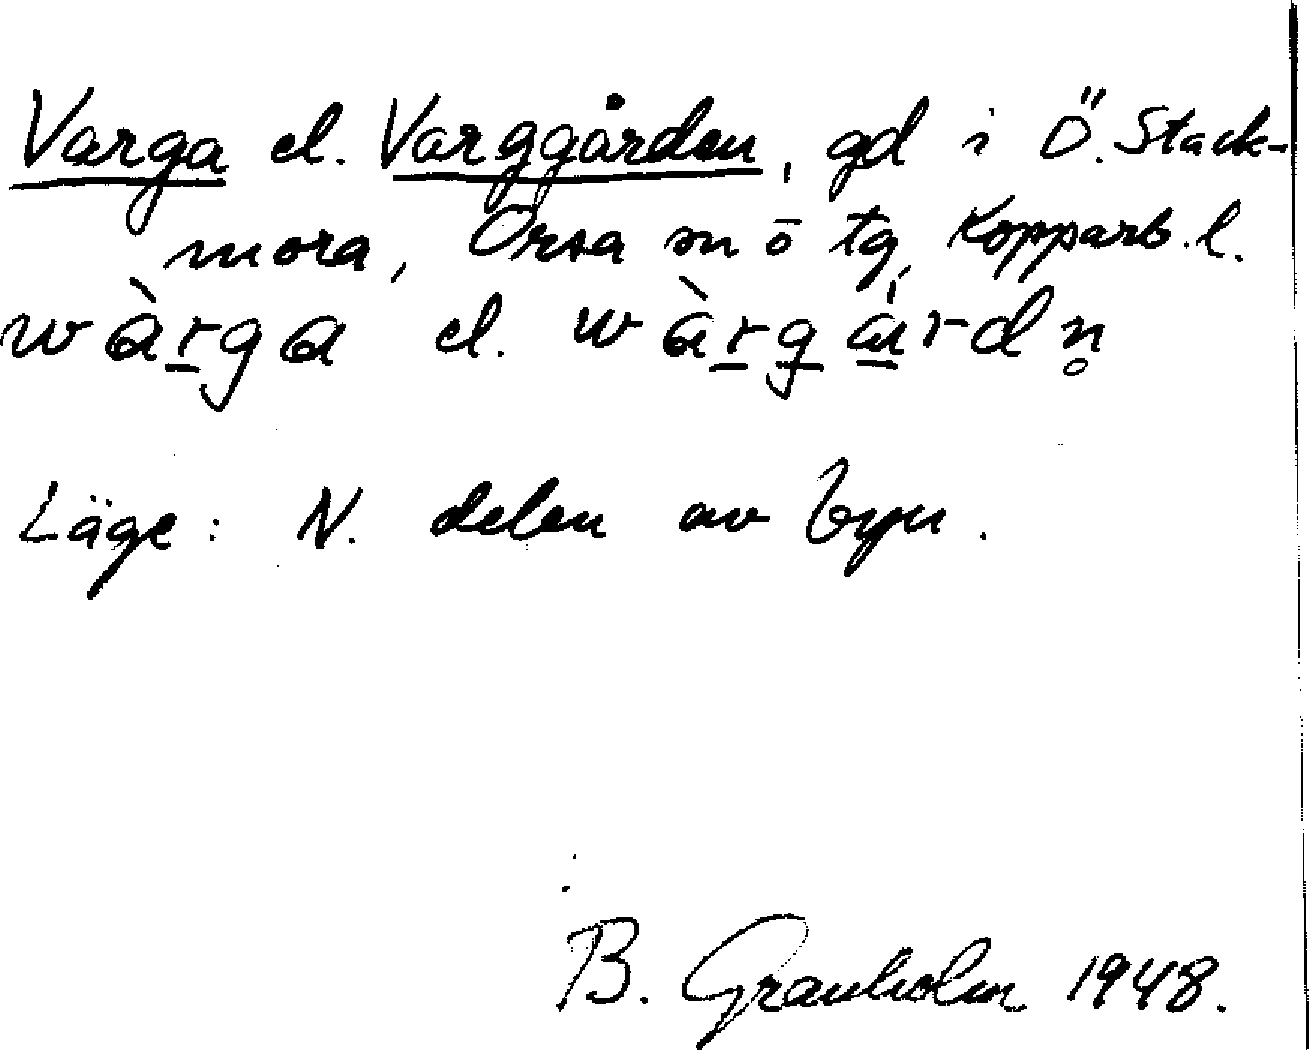 Varga el. Varggården, gd i Ö. Stack-
mora, Orsa sn o tg, Kopparb. l.
wàrga el. wàrgárdn̥
Läge: N. delen av byn.
B. Granholm 1948.